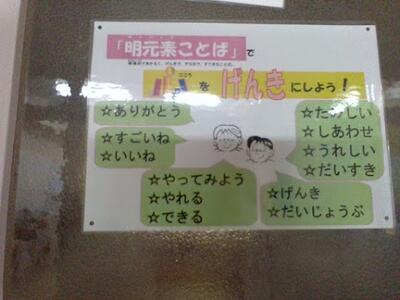 「明元素ことば」で
心 こころ を げんき にしよう！
☆ありがとう
☆すごいね
☆いいね
☆たのしい
☆しあわせ
☆うれしい
☆だいすき
☆やってみよう
☆やれる
☆できる
☆げんき
☆だいじょうぶ